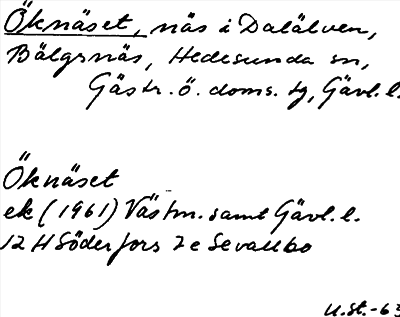 Öknäset, näs i Dalälven,
Bälgsnäs, Hedesunda sn,
Gästr. ö. doms. tg, Gävl. l.
Öknäset
ek (1961) Västm. samt Gävl. l.
12 H Söderfors 7 e Sevallbo
U.St.-63